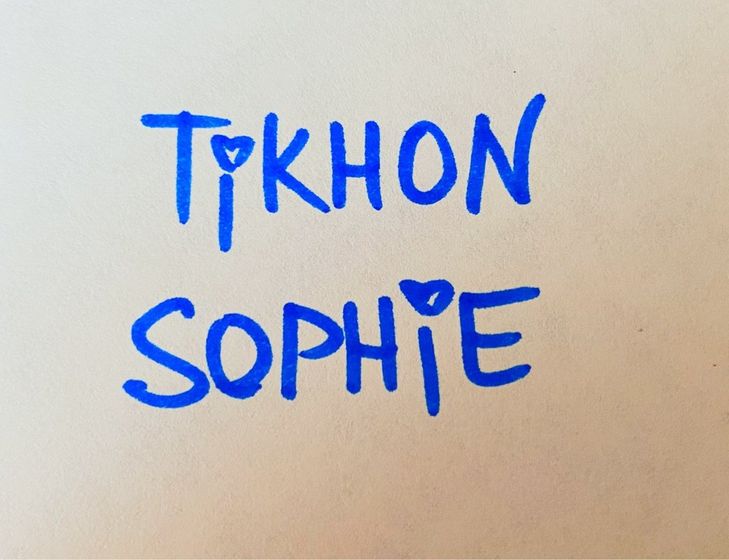 TiKHON
SOPHiE